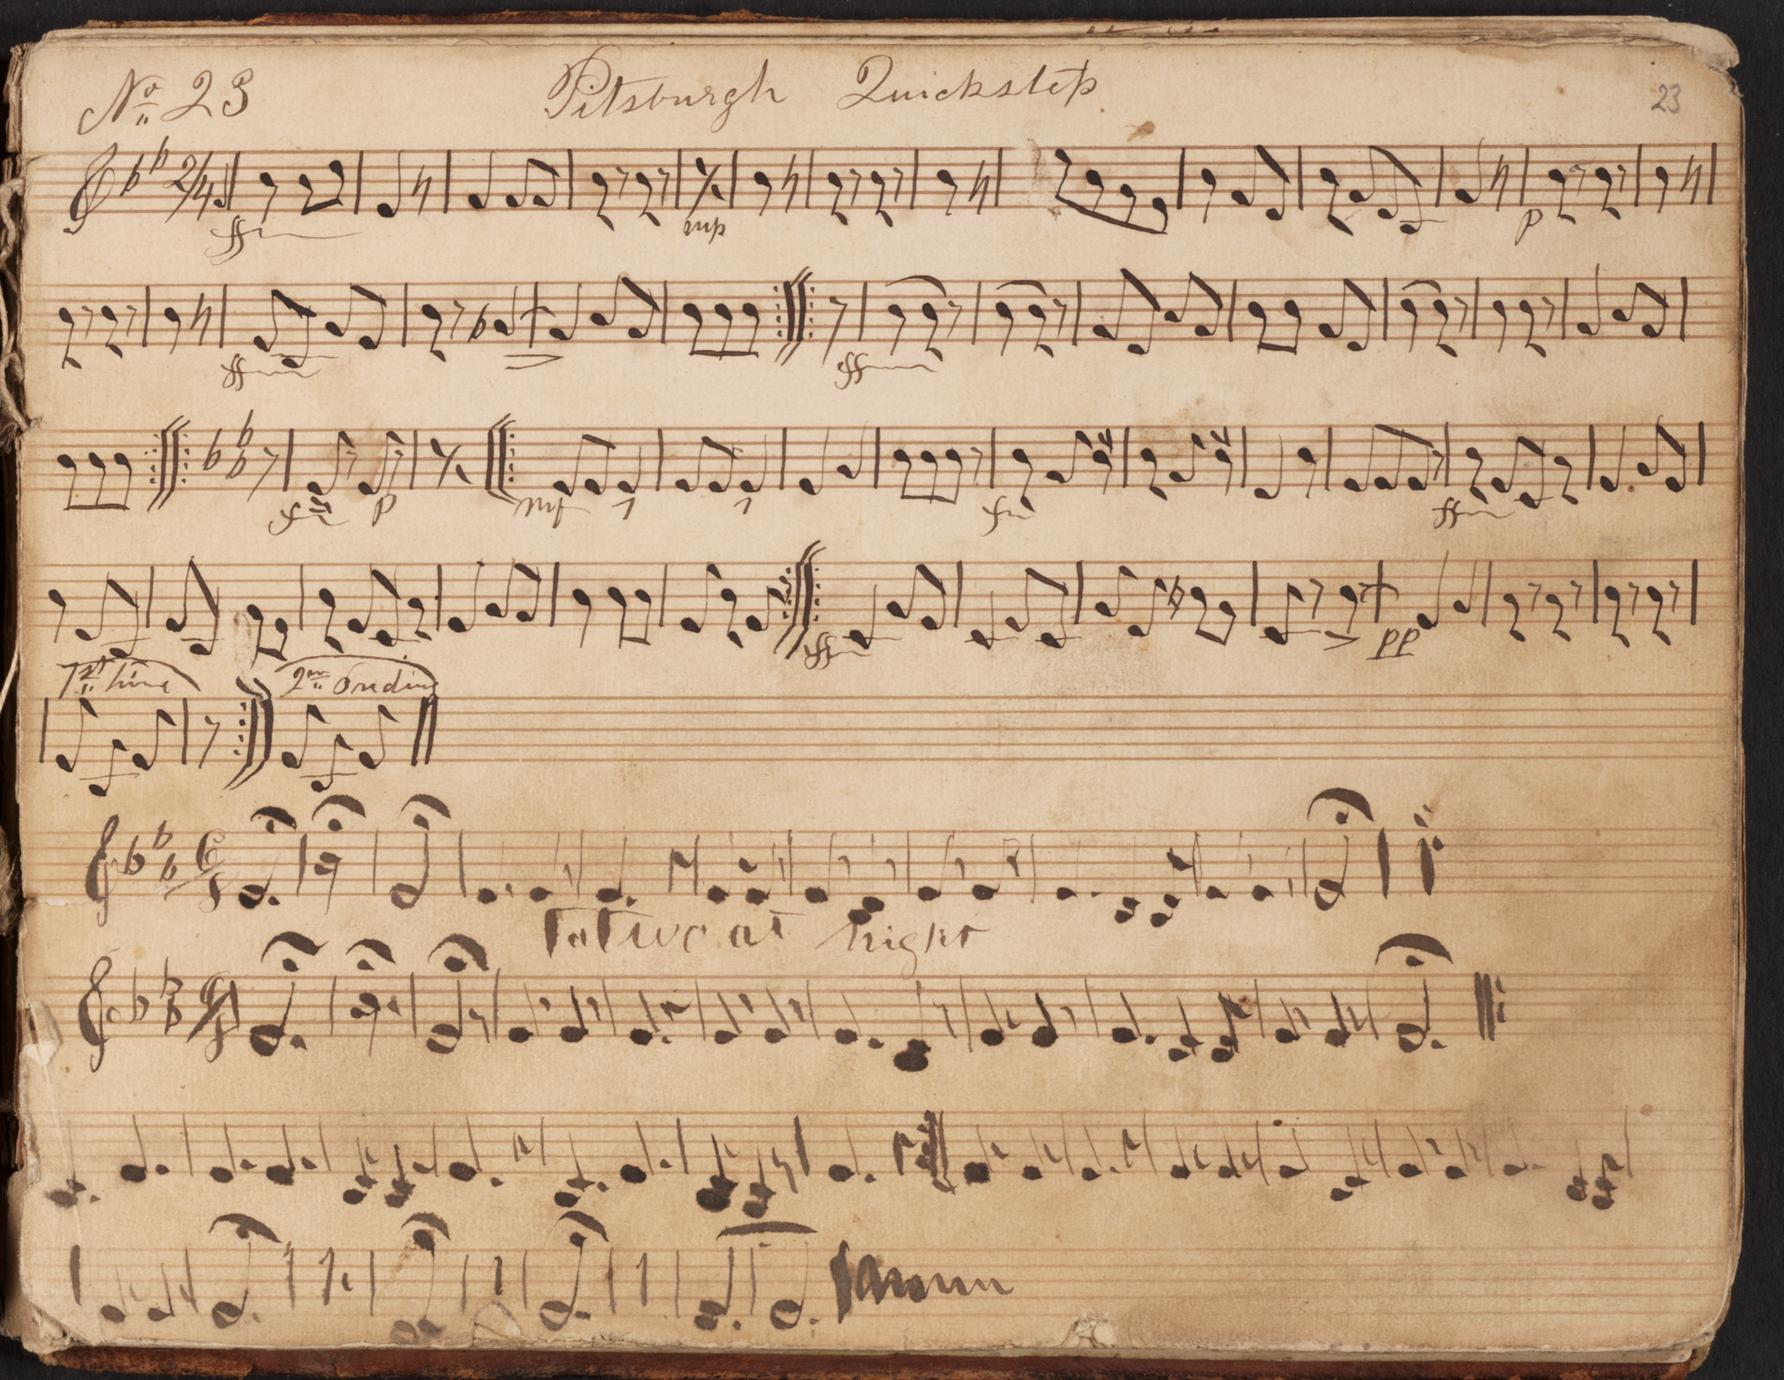 No. 23 Pitsburgh Quickstep 23
2/4
ff mp p
ff ff
ff p mf ff
ff pp
1st time 2nd
at night